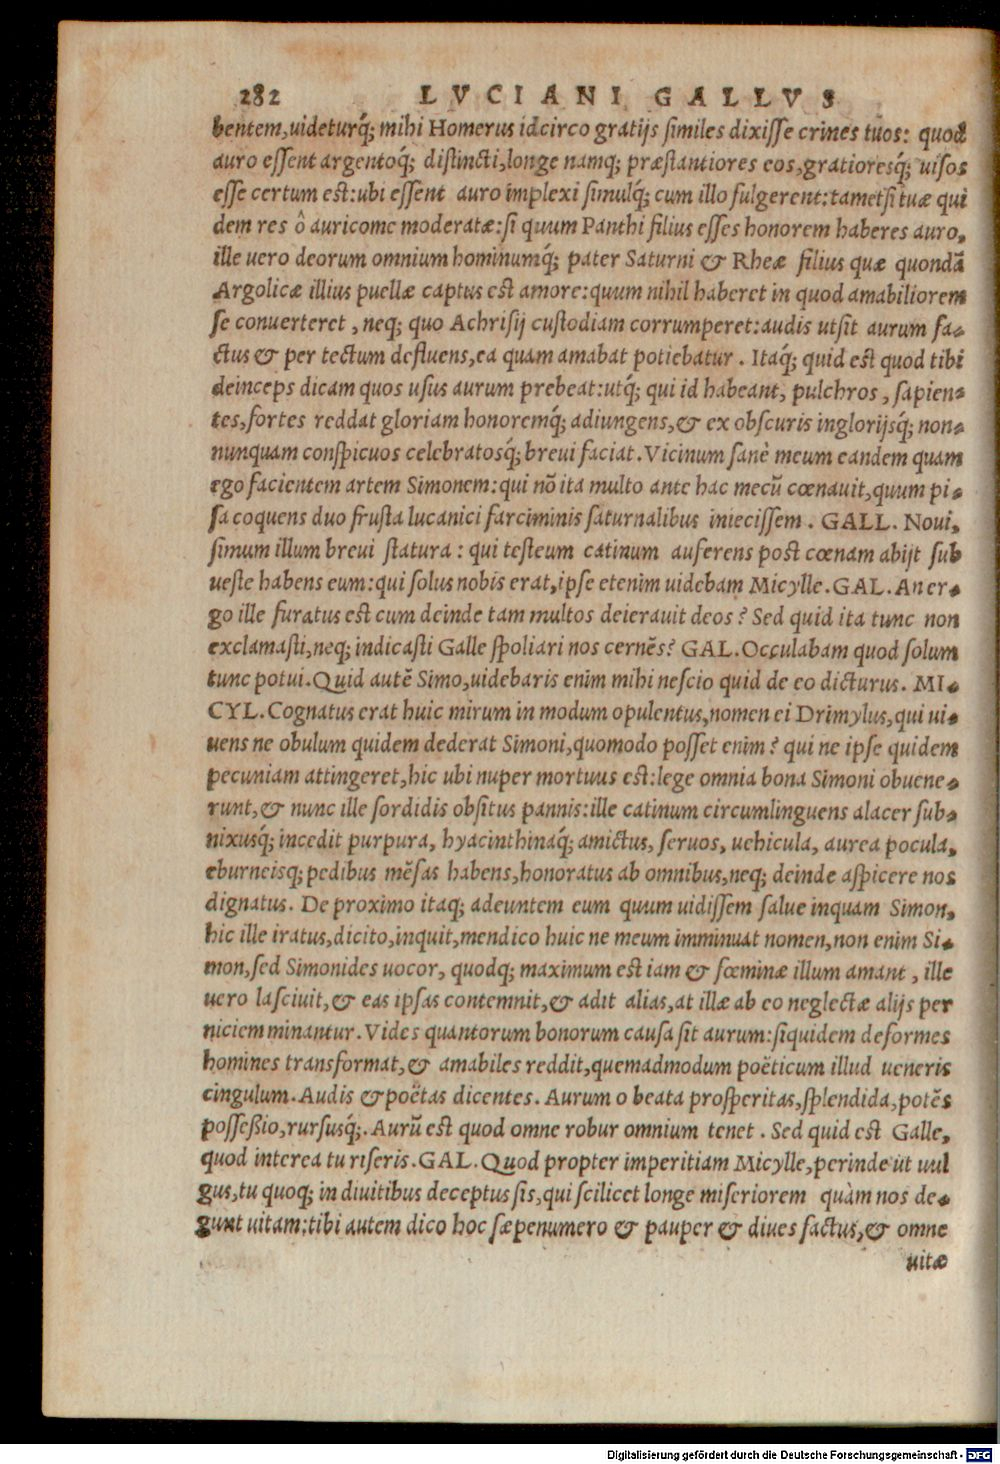 282 LVCIANI GALLVS
bentem,uideturq́; mihi Homerus idcirco gratijs ſimiles dixiſſe crines tuos: quod
auro eſſent argentoq́; diſtincti,longe namq; præſtantiores eos,gratioresq́; uiſos
eſſe certum eſt:ubi eſſent auro implexi ſimulq́; cum illo fulgerent:tametſi tuæ qui
dem res ô auricome moderatæ:ſi quum Panthi filius eſſes honorem haberes auro,
ille uero deorum omnium hominumq́; pater Saturni & Rheæ filius quæ quondã
Argolicæ illius puellæ captus eſt amore:quum nihil haberet in quod amabiliorem
ſe conuerteret, neq; quo Achriſij cuſtodiam corrumperet:audis utſit aurum fa-
ctus & per tectum defluens,ea quam amabat potiebatur. Itaq́; quid eſt quod tibi
deinceps dicam quos uſus aurum prebeat:utq́; qui id habeant, pulchros, ſapien-
tes,fortes reddat gloriam honoremq́; adiungens,& ex obſcuris inglorijsq́; non-
nunquam conſpicuos celebratosq́; breui faciat. Vicinum ſanè meum eandem quam
ego facientem artem Simonem: qui nõ ita multo ante hac mecũ cœnauit,quum pi-
ſa coquens duo fruſta lucanici farciminis ſaturnalibus inieciſſem. GALL. Noui,
ſimum illum breui ſtatura: qui teſteum catinum auferens poſt cœnam abijt ſub
ueſte habens eum:qui ſolus nobis erat,ipſe etenim uidebam Micylle. GAL. An er-
go ille furatus eſt cum deinde tam multos deierauit deos? Sed quid ita tunc non
exclamaſti,neq; indicaſti Galle ſpoliari nos cernẽs? GAL. Occulabam quod ſolum
tunc potui. Quid autẽ Simo,uidebaris enim mihi neſcio quid de eo dicturus. MI-
CYL. Cognatus erat huic mirum in modum opulentus,nomen ei Drimylus,qui ui-
uens ne obulum quidem dederat Simoni,quomodo poſſet enim? qui ne ipſe quidem
pecuniam attingeret,hic ubi nuper mortuus eſt:lege omnia bona Simoni obuene-
runt,& nunc ille ſordidis obſitus pannis:ille catinum circumlinguens alacer ſub-
nixusq́; incedit purpura, hyacinthinaq́; amictus, ſeruos, uehicula, aurea pocula,
eburneisq; pedibus mẽſas habens,honoratus ab omnibus,neq; deinde aſpicere nos
dignatus. De proximo itaq; adeuntem eum quum uidiſſem ſalue inquam Simon,
hic ille iratus,dicito,inquit,mendico huic ne meum imminuat nomen,non enim Si-
mon,ſed Simonides uocor, quodq; maximum eſt iam & fœminæ illum amant, ille
uero laſciuit,& eas ipſas contemnit,& adit alias,at illæ ab eo neglectæ alijs per
niciem minantur. Vides quantorum bonorum cauſa ſit aurum:ſiquidem deformes
homines transformat,& amabiles reddit,quemadmodum poëticum illud ueneris
cingulum. Audis & poëtas dicentes. Aurum o beata proſperitas,ſplendida,potẽs
poſſeßio,rurſusq́;. Aurũ eſt quod omne robur omnium tenet. Sed quid eſt Galle,
quod interea tu riſeris. GAL. Quod propter imperitiam Micylle,perinde ut uul
gus,tu quoq; in diuitibus deceptus ſis,qui ſcilicet longe miſeriorem quàm nos de-
gunt uitam:tibi autem dico hoc ſæpenumero & pauper & diues factus,& omne
uitæ
Digitalisierung gefördert durch die Deutsche Forschungsgemeinschaft - DFG